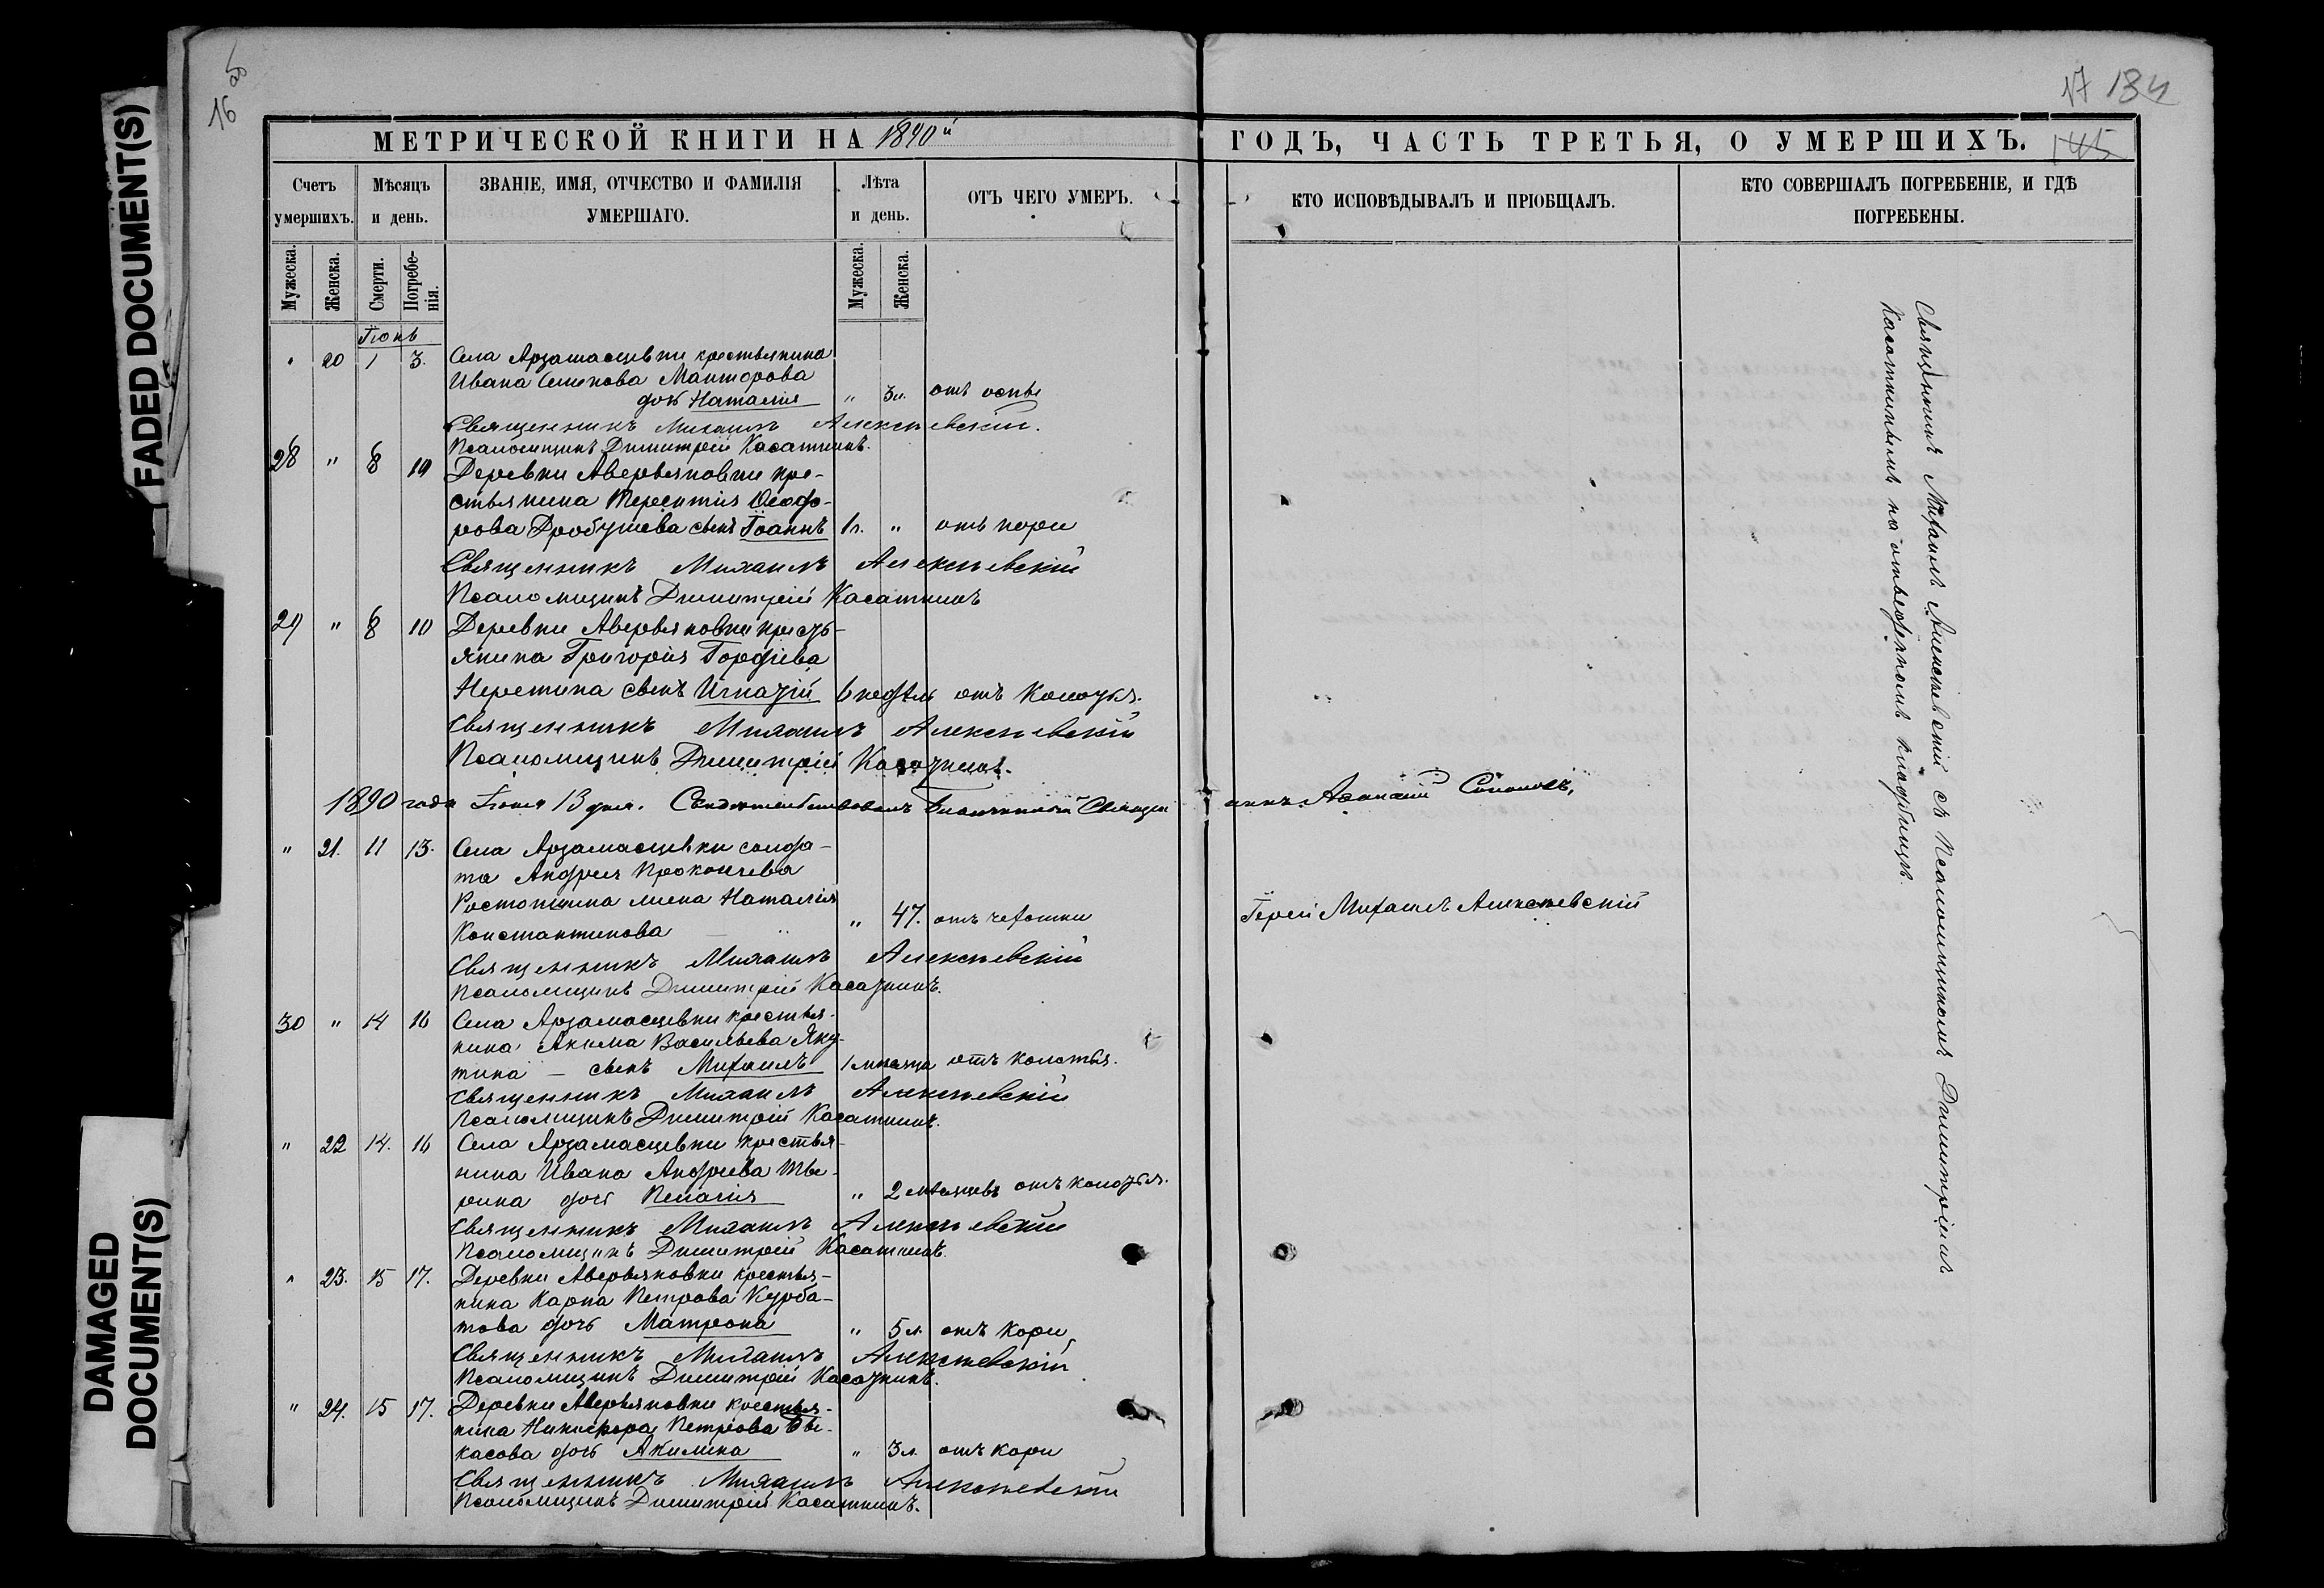 FADED DOCUMENT(S)
DAMAGED
DOCUMENT(S)
16 об
17 134
145
МЕТРИЧЕСКОЙ КНИГИ НА 1890й
ГОДЪ, ЧАСТЬ ТРЕТЬЯ, О УМЕРШИХЪ.
Счетъ
умершихъ.
Мѣсяцъ
и день.
ЗВАНІЕ, ИМЯ, ОТЧЕСТВО И ФАМИЛІЯ
УМЕРШАГО.
Лѣта
и день.
ОТЪ ЧЕГО УМЕРЪ.
КТО ИСПОВѢДЫВАЛЪ И ПРІОБЩАЛЪ.
КТО СОВЕРШАЛЪ ПОГРЕБЕНІЕ, И ГДѢ
ПОГРЕБЕНЫ.
Мужеска.
Женска.
Смерти.
Погребе-
нія.
Мужеска.
Женска.
Іюнь
" 20 1 3. Села Арзамасцевки крестьянина
Ивана Семенова
дочь Наталія " 3 л. отъ оспы
Священникъ Михаилъ Алексѣевскій.
Псаломщикъ Димитрій Касаткинъ.
28 " 8 10 Деревни Аверьяновки кре-
стьянина Терентія Ѳеодо-
рова Дробушева сынъ Іоаннъ 1 л. " отъ кори
Священникъ Михаилъ Алексѣевскій
Псаломщикъ Димитрій Касаткинъ
29 " 8 10 Деревни Аверьяновки крестъ-
янина Григорія Гордѣева
Неретина сынъ Игнатій 6 недѣль отъ колотья.
Священникъ Михаилъ Алексѣевскій
Псаломщикъ Димитрій Касаткинъ.
1890 года Іюня 13 дня. Свидѣтельствовалъ Благочинный Священникъ
" 21. 11 13. Села Арзамасцевки солда-
та Андрея Прокопьева
Ростопшина жена Наталія
Константинова " 47. отъ чахотки
Іерей Михаилъ Алексѣевскій
Священникъ Михаилъ Алексѣевскій
Псаломщикъ Димитрій Касаткинъ.
30 " 14 16 Села Арзамасцевки крестья-
нина Акима Васильева Яку-
тина – сынъ Михаилъ 1 мѣсяца отъ колотья.
Священникъ Михаилъ Алексѣевскій
Псаломщикъ Димитрій Касаткинъ.
" 22 14. 16 Села Арзамасцевки крестья-
нина Ивана Андреева
дочь Пелагія " 2 мѣсяцевъ отъ колотья.
Священникъ Михаилъ Алексѣевскій
Псаломщикъ Димитрій Касаткинъ.
" 23. 15 17. Деревни Аверьяновки крестья-
нина Карпа Петрова Курба-
това дочь Матрона " 5 л. отъ кори
Священникъ Михаилъ Алексѣевскій
Псаломщикъ Димитрій Касаткинъ.
" 24. 15 17. Деревни Аверьяновки крестья-
нина Никифора Петрова Бы-
касова дочь Акилина " 3 л. отъ кори
Священникъ Михаилъ Алексѣевскій
Псаломщикъ Димитрій Касаткинъ.
Священникъ Михаилъ Алексѣевскій съ Псаломщикомъ Димитріемъ
Касаткинымъ на отведенномъ кладбищѣ.